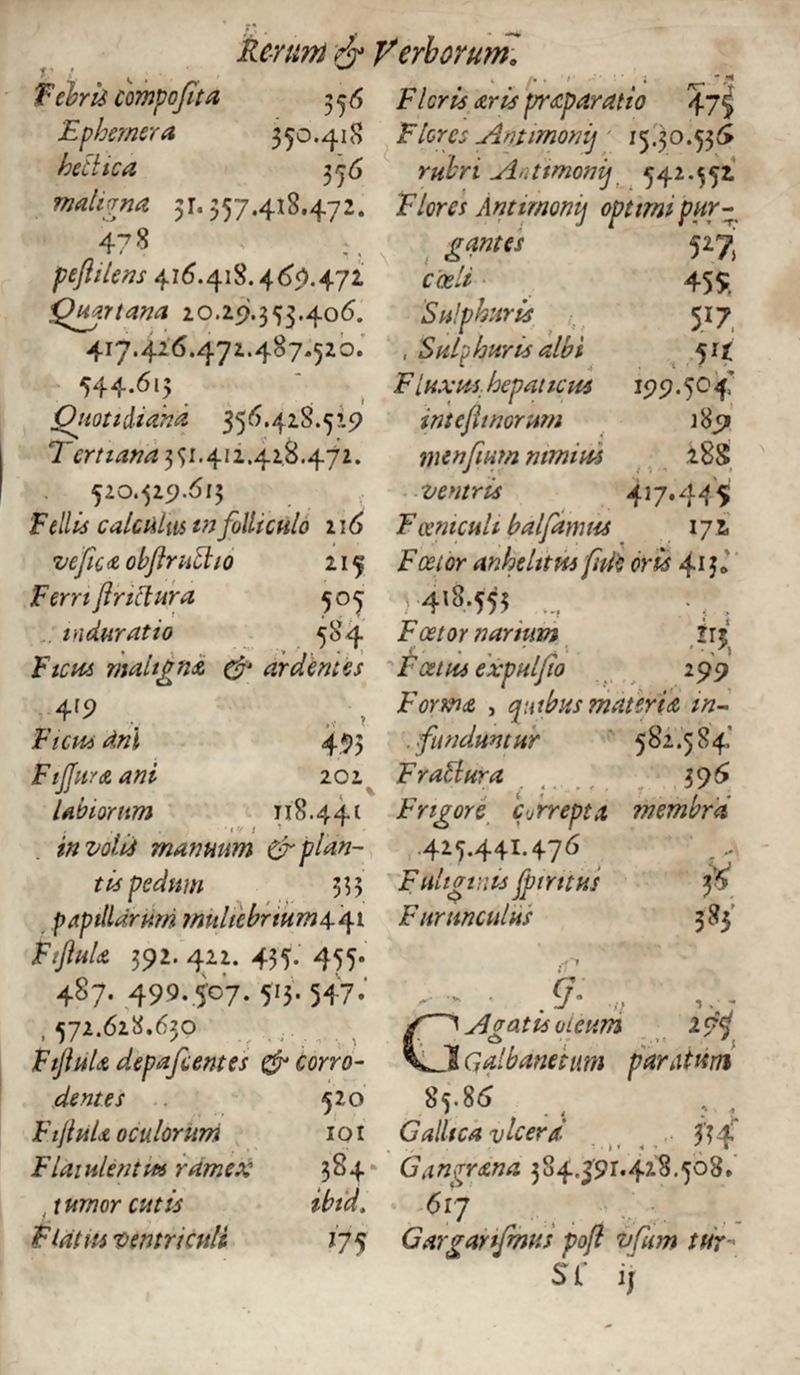 Rerum & Verborum.
Febris composita 356
Ephemera 350.418
hectica 356
maligna 31.357.418.472.
478
pestilens 416.418.469.472
Quartana 20.29.353.406.
417.426.472.487.520.
544.613
Quotidiana 356.428.529
Tertiana 351.412.428.472.
520.529.613
Fellis calculus in folliculo 216
vesicæ obstructio 215
Ferri strictura 505
induratio 584
Ficus malignæ & ardentes
419
Ficus ani 493
Fissuræ ani 202
labiorum 118.441
in volis manuum & plan-
tis pedum 333
papillarum muliebrium 441
Fistulæ 392. 422. 435. 455.
487. 499. 507. 513. 547.
572.628.630
Fistulæ depascentes & corro-
dentes 520
Fistulæ oculorum 101
Flatulentus ramex 384
tumor cutis ibid.
Flatus ventriculi 175
Floris æris præparatio 475
Flores Antimonij 15.30.536
rubri Antimonij 542.552
Flores Antimonij optimi pur-
gantes 527
cœli 455
Sulphuris 517
Sulphuris albi
Fluxus hepaticus 199.504
intestinorum 189
mensium nimius 288
ventris 417.445
Fœniculi balsamus 172
Fœtor anhelitus siue oris 413.
418.553
Fœtor narium 113
Fœtus expulsio 299
Formæ, quibus materiæ in-
funduntur 582.584
Fractura 396
Frigore correpta membra
425.441.476
Fuliginis spiritus 36
Furunculus 383
G.
GAgatis oleum
Galbanetum paratum
85.86
Gallica vlcera 334
Gangræna 384.391.428.508.
617
Gargarismus post vsum tur-
Sſ ij